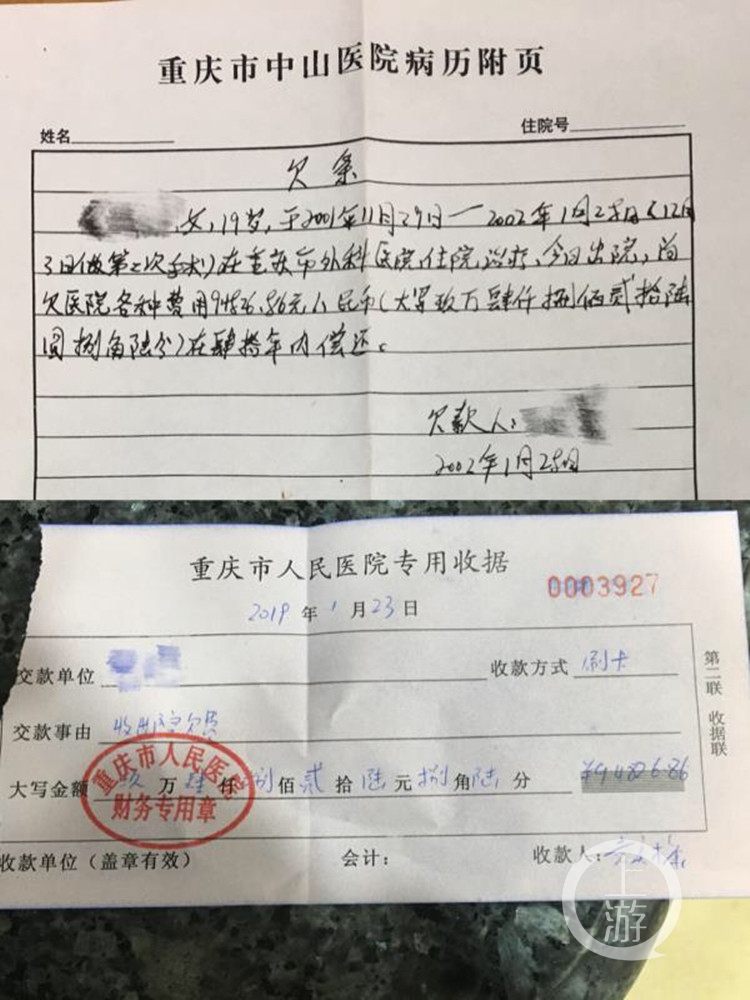 重庆市中山医院病历附页
姓名 住院号
欠条
,女,19岁,于2001年11月29日一2002年1月25日(12月
3日做第二次手术)在重庆市外科医院住院治疗,今日出院,尚
欠医院各种费用94826.86元人民币(大写玖万肆仟捌佰贰拾陆
圆捌角陆分)在肆拾年内偿还。
欠款人:
2002年1月25日
重庆市人民医院专用收据
0003927
2019年1月23日
交款单位 收款方式 刷卡
交款事由 收出院欠费
大写金额 玖万肆仟捌佰贰拾陆元捌角陆分 ¥94826.86
重庆市人民医院
财务专用章
收款单位(盖章有效) 会计: 收款人:
第二联 收据联
上游